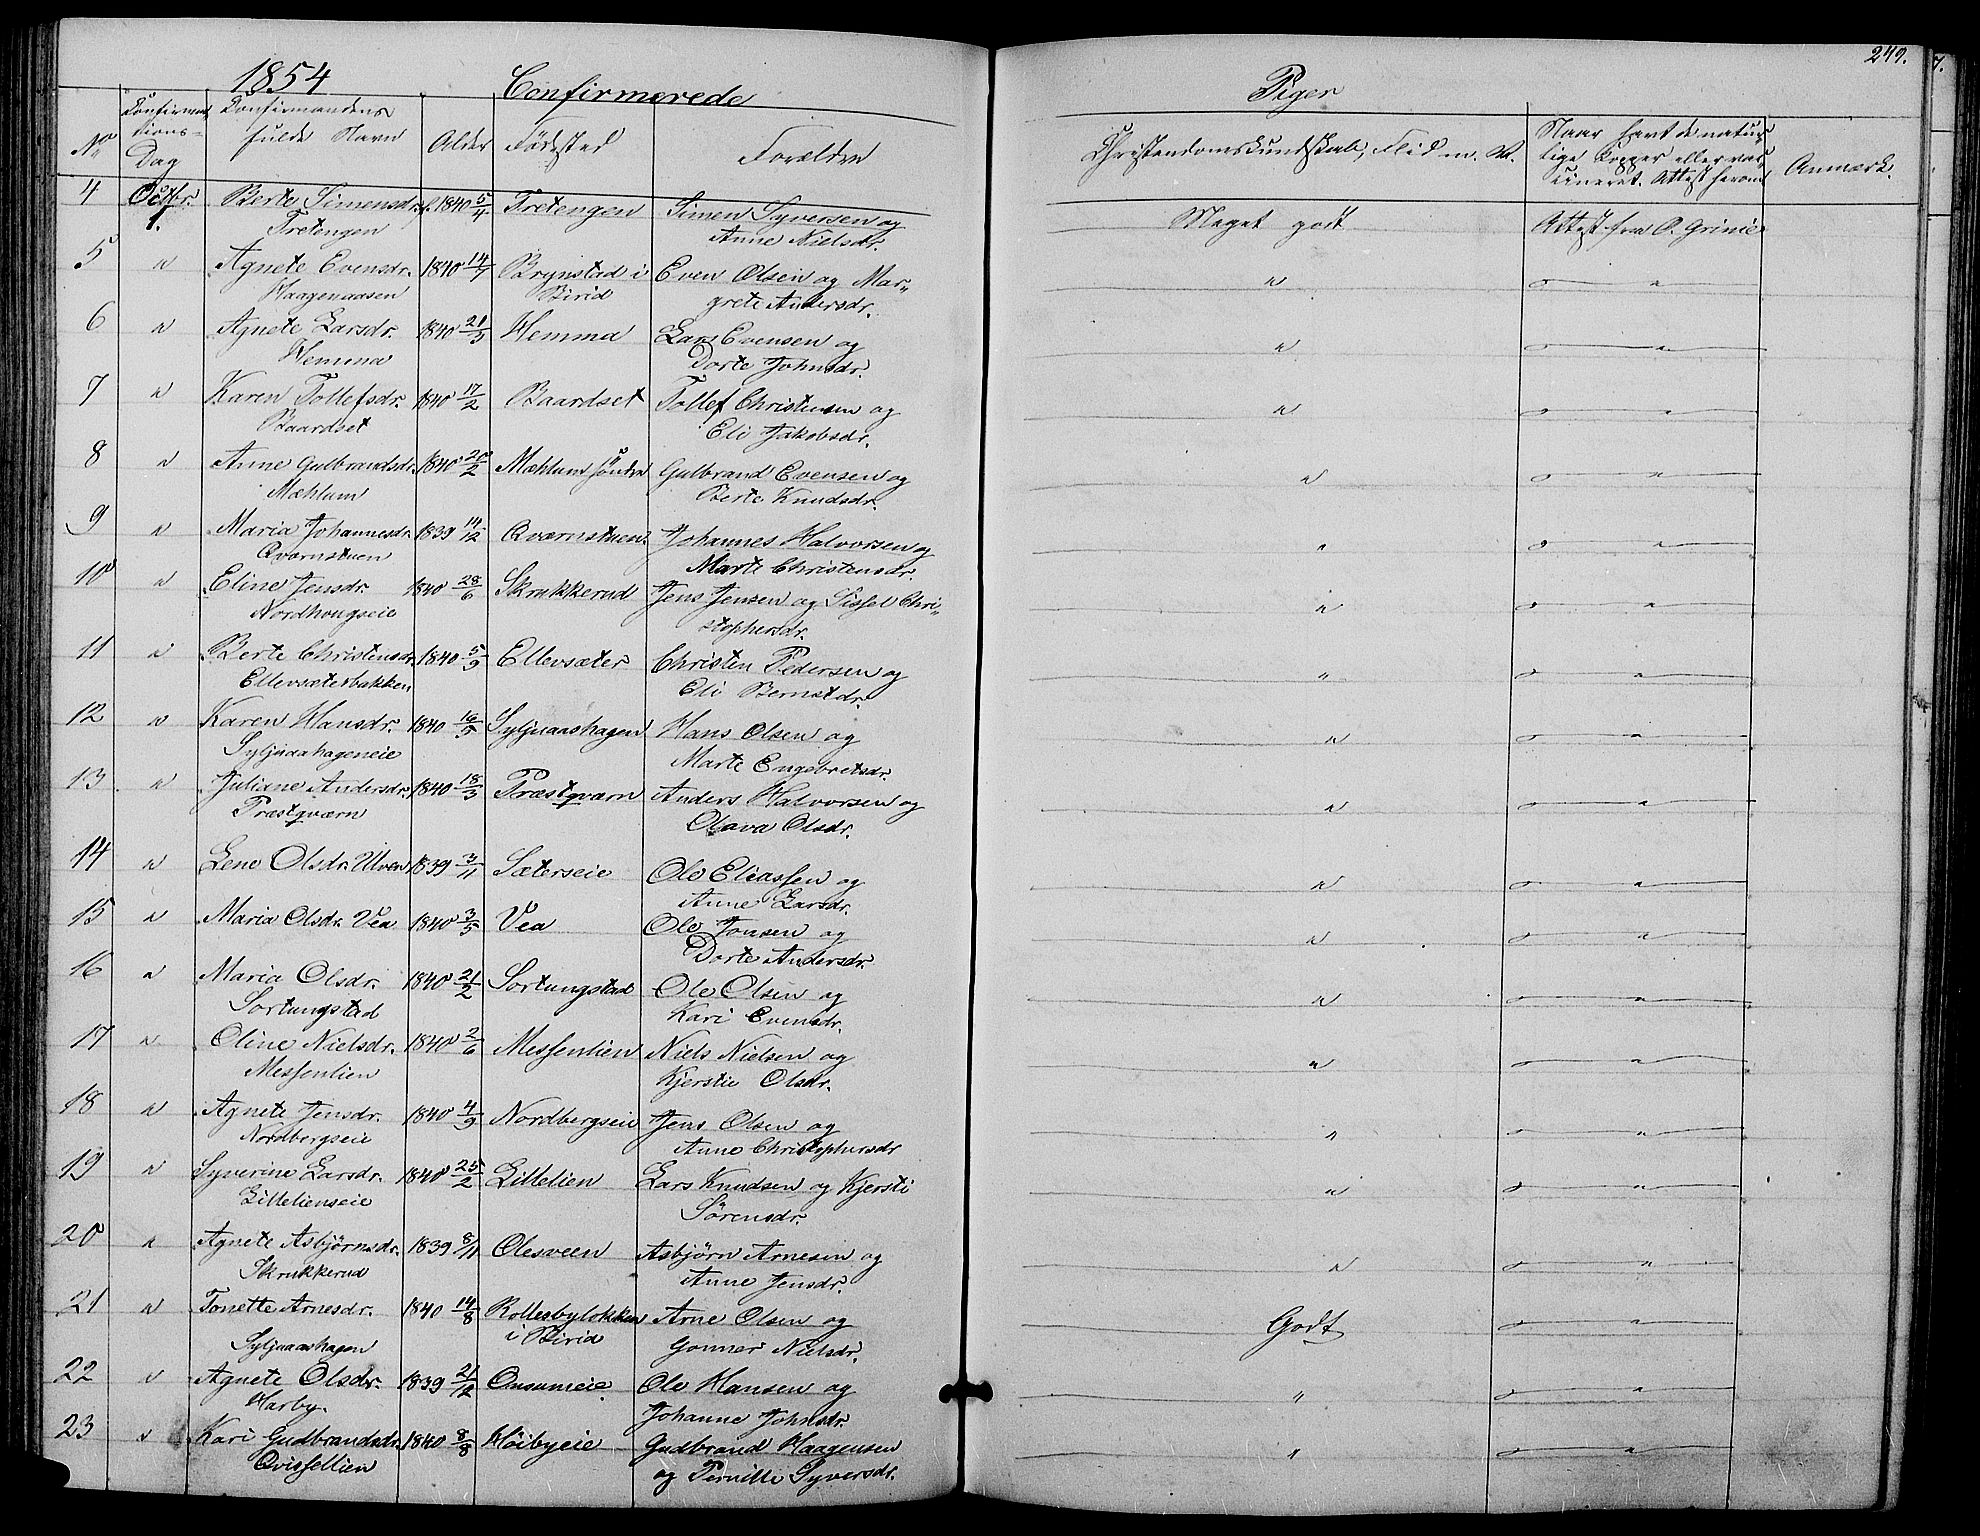 1854 Confirmerede Piger 249.
No Confirmations-Dag Confirmandens fulde Navn Alder Födested Forældre Christendomskundskab, Flid m. V. Naar havt de naturlige Kopper eller vaccineret. Attest herom Anmærk.
4 Octbr. 1. Berte Simensdr. f. 1840 5/4 Tretengen Simen Syversen og Meget godt Attest fra O. Grinie
Tretengen Anne Nielsdr.
5 " Agnete Evensdr. 1840 14/7 Brynstad i Even Olsen og Mar- " " 
Haagenaasen Birid grete Andersdr.
6 " Agnete Larsdr. 1840 21/5 Hemma Lars Evensen og " "
Hemma Dorte Johnsdr.
7 " Karen Tollefsdr. 1840 17/2 Baardset Tollef Christensen og " "
Baardset Eli Jakobsdr.
8 " Anne Gulbrandsdr. 1840 20/2 Mæhlum söndre Gulbrand Evensen og " "
Mæhlum Berte Knudsdr.
9 " Maria Johannesdr. 1839 14/12 Qværnstuen Johannes Halvorsen og " "
Qværnstuen Marte Christensdr.
10 " Eline Jensdr. 1840 28/6 Skrukkerud Jens Jensen og Sissel Chri- " "
Nordhougseie stophersdr.
11 " Berte Christensdr. 1840 5/9 Ellevsæter Christen Pedersen og " "
Ellevsæterbakken Eli Berntsdr.
12 " Karen Hansdr. 1840 16/5 Syljuaashagen Hans Olsen og " "
Syljuaahageneie Marte Engebretsdr.
13 " Juliane Andersdr. 1840 18/3 Præstqværn Anders Halvorsen og " "
Præstqværn Olava Olsdr.
14 " Lene Olsdr. Ulven 1839 3/11 Sæterseie Ole Eliassen og " "
Anne Larsdr.
15 " Maria Olsdr. Vea 1840 3/5 Vea Ole Jonsen og " "
Dorte Andersdr.
16 " Maria Olsdr. 1840 21/2 Sortungstad Ole Olsen og " "
Sortungstad Kari Evensdr.
17 " Oline Nielsdr. 1840 2/6 Messenlien Niels Nielsen og " "
Messenlien Kjerstie Olsdr.
18 " Agnete Jensdr. 1840 4/9 Nordbergseie Jens Olsen og " "
Nordbergseie Anne Christophersdr
19 " Syverine Larsdr. 1840 25/2 Lillelien Lars Knudsen og Kjersti " "
Lillelienseie Sörensdr.
20 " Agnete Asbjörnsdr. 1839 8/11 Olesveen Asbjörn Arnesen og " "
Skrukkerud Anne Jensdr.
21 " Tonette Arnesdr. 1840 14/8 Rollesbylökken Arne Olsen og Godt "
Syljuaashagen i Birid Gonner Nielsdr.
22 " Agnete Olsdr. 1839 21/12 Onsumeie Ole Hansen og " "
Harby. Johanne Johnsdr.
23 " Kari Gudbrandsdr. 1840 8/8 Höibyeie Gudbrand Haagensen " "
Qvissellien og Pernille Syversdr.